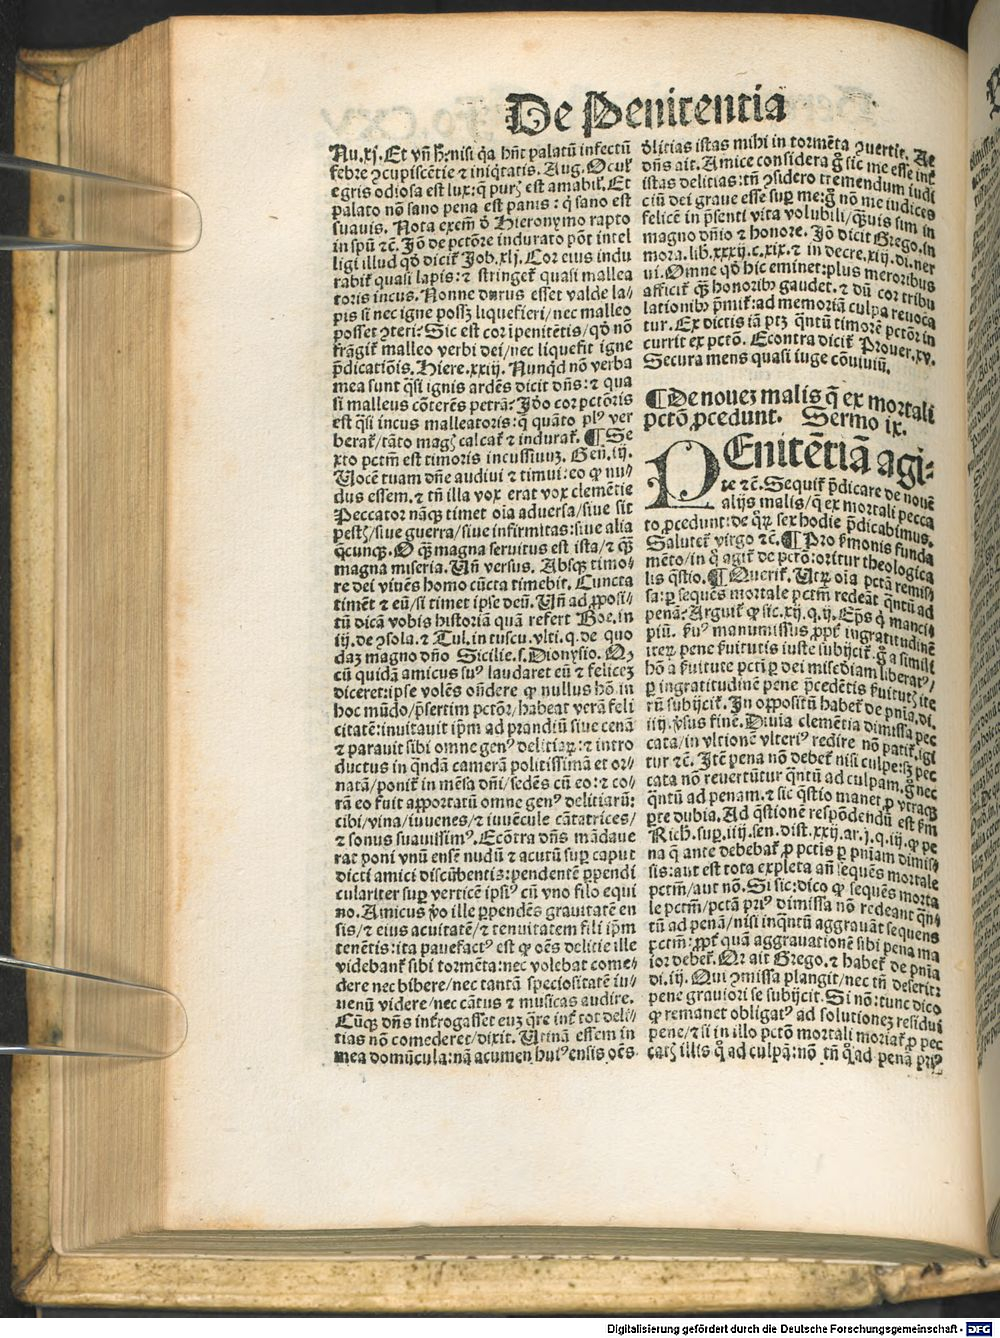 De Penitentia
Nu.xj. Et vñ h̄.nisi q̇a hn̄t palatū infectū
febre ꝯcupiscētie ⁊ iniq̇tatis. Aug. Oculꝭ
egris odiosa est lux: q̄ purꝭ est amabilꝭ. Et
palato nō sano pena est panis: q̇ sano est
suauis. Nota exem̄ d̄ Hieronymo rapto
in spū ⁊c̄. Jō de pctōre indurato pōt intel
ligi illud qd̄ dicit̄ Job.xlj. Cor eius indu
rabit̄ quasi lapis: ⁊ stringet̄ quasi mallea
toris incus. Nonne durus esset valde la⸗
pis si nec igne possꝫ liquefieri/nec malleo
posset ꝯteri? Sic est cor īpenitētis/qd̄ nō
frāgit̄ malleo verbi dei/nec liquefit igne
p̄dicatiōis. Hiere.xxiij. Nunqd̄ nō verba
mea sunt q̄si ignis ardēs dicit dn̄s: ⁊ qua
si malleus cōterēs petrā? Jdo cor pctōris
est q̄si incus malleatoris: q̇ quāto plꝰ ver
berat̄/tāto magꝭ calcat̄ ⁊ indurat̄. ¶ Se
xto pctm̄ est timoris incussiuuꝫ. Gen̄.iij.
Uocē tuam dn̄e audiui ⁊ timui: eo ꝙ nu⸗
dus essem. ⁊ tn̄ illa vox erat vox clemētie
Peccator nāqꝫ timet oīa aduersa/siue sit
pestꝭ/siue guerra/siue infirmitas: siue alia
q̄cunqꝫ. O q̄ꝫ magna seruitus est ista/⁊ q̄ꝫ
magna miseria. Uñ versus. Absqꝫ timo⸗
re dei viuēs homo cūcta timebit. Cuncta
timēt ⁊ eū/si timet ipse deū. Uñ ad ꝓposi⸗
tū dicā vobis historiā quā refert Boe. in
iij. de ꝯsola. ⁊ Tul. in tuscu. vlti. q. de quo
daꝫ magno dn̄o Sicilie.s. Dionysio. Nā
cū quidā amicus suꝰ laudaret eū ⁊ feliceꝫ
diceret: ipse volēs on̄dere ꝙ nullus hō in
hoc mūdo/p̄sertim pctōr/habeat verā feli
citatē: inuitauit ip̄m ad prandiū siue cenā
⁊ parauit sibi omne genꝰ delitiaꝝ: ⁊ intro
ductus in q̄ndā camerā politissimā et or⸗
natā/ponit̄ in mēsa dn̄i/sedēs cū eo: ⁊ co⸗
rā eo fuit apportatū omne genꝰ delitiarū:
cibi/vina/iuuenes/⁊ iuuēcule cātatrices/
⁊ sonus suauissimꝰ. Ecōtra dn̄s mādaue
rat poni vnū ensē nudū ⁊ acutū suꝑ caput
dicti amici discūbentis: pendentē ꝑpendi
culariter suꝑ verticē ipsiꝰ cū vno filo equi
no. Amicus v̄o ille ꝑpendēs grauitatē en
sis/⁊ eius acuitatē/⁊ tenuitatem fili ip̄m
tenētis: ita pauefactꝰ est ꝙ oēs delitie ille
videbant̄ sibi tormēta: nec volebat come⸗
dere nec bibere/nec tantā speciositatē iu⸗
uenū videre/nec cātus ⁊ musicas audire.
Cūqꝫ dn̄s int̄rogasset euꝫ q̄re int̄ tot deli⸗
tias nō comederet/dixit. Utinā essem in
mea domūcula: nā acumen huiꝰ ensis oēs
d̄litias istas mihi in tormēta ꝯuertit. At
dn̄s ait. Amice considera q̊ sic me esse int̄
istas delitias: tn̄ ꝯsidero tremendum iudi
ciū dei graue esse suꝑ me: q̊ nō me iudices
felicē in p̄senti vita volubili/q̄ꝫuis sim in
magno dn̄io ⁊ honore. Jō dicit Grego. in
mora. lib.xxxij.c.xix. ⁊ in decre.xij.di.ner
ui. Omne qd̄ hic eminet: plus meroribus
afficit̄ q̄ꝫ honoribꝰ gaudet. ⁊ dū cor tribu
lationibꝰ p̄mit̄: ad memoriā culpa reuoca
tur. Ex dictis iā ptꝫ q̄ntū timorē pctōr in
currit ex pctō. Econtra dicit̄ Prouer.xv.
Secura mens quasi iuge cōuiuiū.
¶ De noueꝫ malis q̄ ex mortali
pctō ꝓcedunt. Sermo ix.
PEnitētiā agi⸗
te ⁊c̄. Sequit̄ p̄dicare de nouē
alijs malis/q̄ ex mortali pecca
to ꝓcedunt: de q̇bꝰ sex hodie p̄dicabimus.
Salutet̄ virgo ⁊c̄. ¶ Pro sermonis funda
mēto/in q̊ agit̄ de pctō: oritur theologica
lis q̄stio. ¶ Querit̄. Utꝝ oīa pctā remis⸗
sa: ꝑ sequēs mortale pctm̄ redeāt q̄ntū ad
penā? Arguit̄ ꝙ sic.xij.q.ij. Ep̄s q̇ manci⸗
piū. seruꝰ manumissus ꝓpt̄ ingratitudinē
iteꝝ pene seruitutis iuste subijcit̄. g̊ a simili
hō a seruitute pcti ꝑ dei miscd̄iam liberatꝰ/
ꝑ ingratitudinē pene p̄cedētis seruitutꝭ ite
rū subijcit̄. Jn oppositū habet̄ de pn̄ia.di.
iiij. v̄sus finē. Diuia clemētia dimissa pec
cata/in vltionē vlteriꝰ redire nō patit̄. igi
tur ⁊c̄. Jtē pena nō debet̄ nisi culpe: sꝫ pec
cata nō reuertūtur q̄ntū ad culpam. g̊ nec
q̄ntū ad penam. ⁊ sic q̄stio manet ꝓ vtraqꝫ
ꝑte dubia. Ad q̄stionē respōdendū est s̄m
Rich. suꝑ.iiij.sen.dist.xxij.ar.j.q.iij. ꝙ pe
na q̄ ante debebat̄ ꝓ pctis ꝑ pn̄iam dimis⸗
sis: aut est tota expleta an̄ sequēs mortale
pctm̄/aut nō. Si sic: dico ꝙ sequēs morta
le pctm̄/pctā priꝰ dimissa nō redeant q̄n⸗
tū ad penā/nisi inq̄ntū aggrauāt sequens
pctm̄: ꝓpt̄ quā aggrauationē sibi pena ma
ior debet̄. Or ait Grego. ⁊ habet̄ de pn̄ia
di.iij. Qui ꝯmissa plangit/nec tn̄ deserit:
pene grauiori se subijcit. Si nō: tunc dico
ꝙ remanet obligatꝰ ad solutioneꝫ residui
pene/⁊ si in illo pctō mortali moriat̄ ꝓ pec
catꝭ illis q̊ ad culpā: nō tn̄ q̊ad penā priꝰ
Digitalisierung gefördert durch die Deutsche Forschungsgemeinschaft - DFG